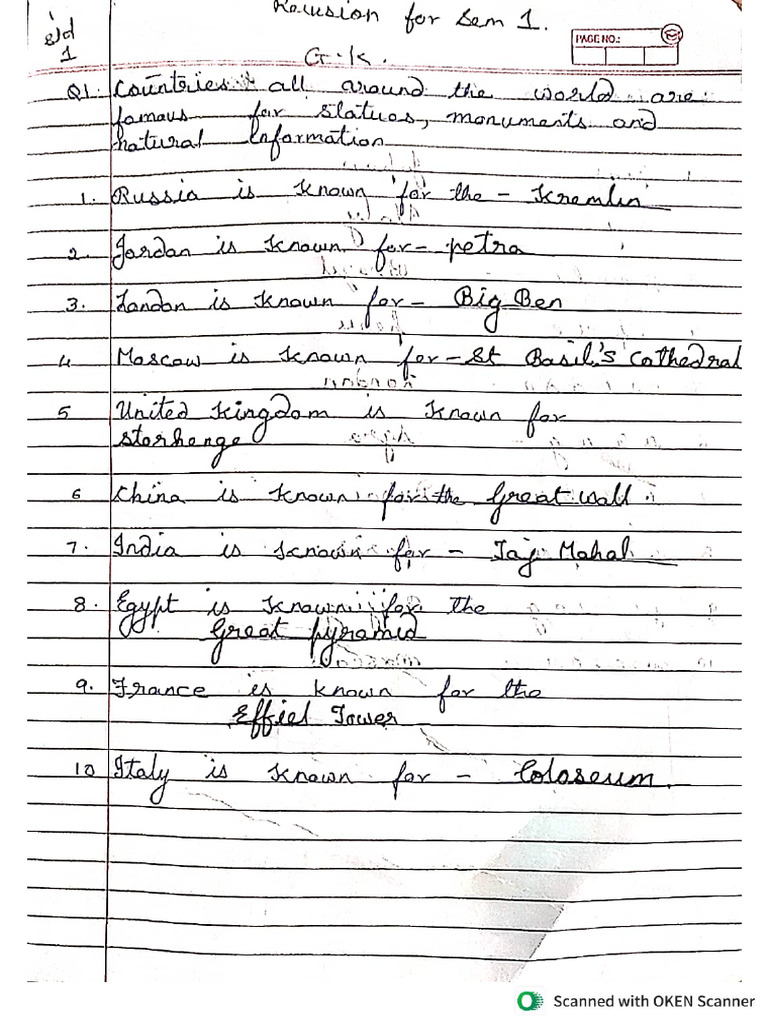 Revision for Sem 1.
1
PAGE NO.:
G.K.
Q1. Countries all around the world are
famous for statues, monuments and
natural Information
1. Russia is known for the - Kremlin
2. Jordan is known for - petra
3. London is known for - Big Ben
4 Moscow is known for - St Basil's Cathedral
5 United Kingdom is known for
storhenge
6 China is known for the Great wall.
7. India is known for - Taj Mahal
8. Egypt is known for the
Great pyramid
9. France is known for the
Effiel Tower
10 Italy is known for - Coloseum.
Scanned with OKEN Scanner